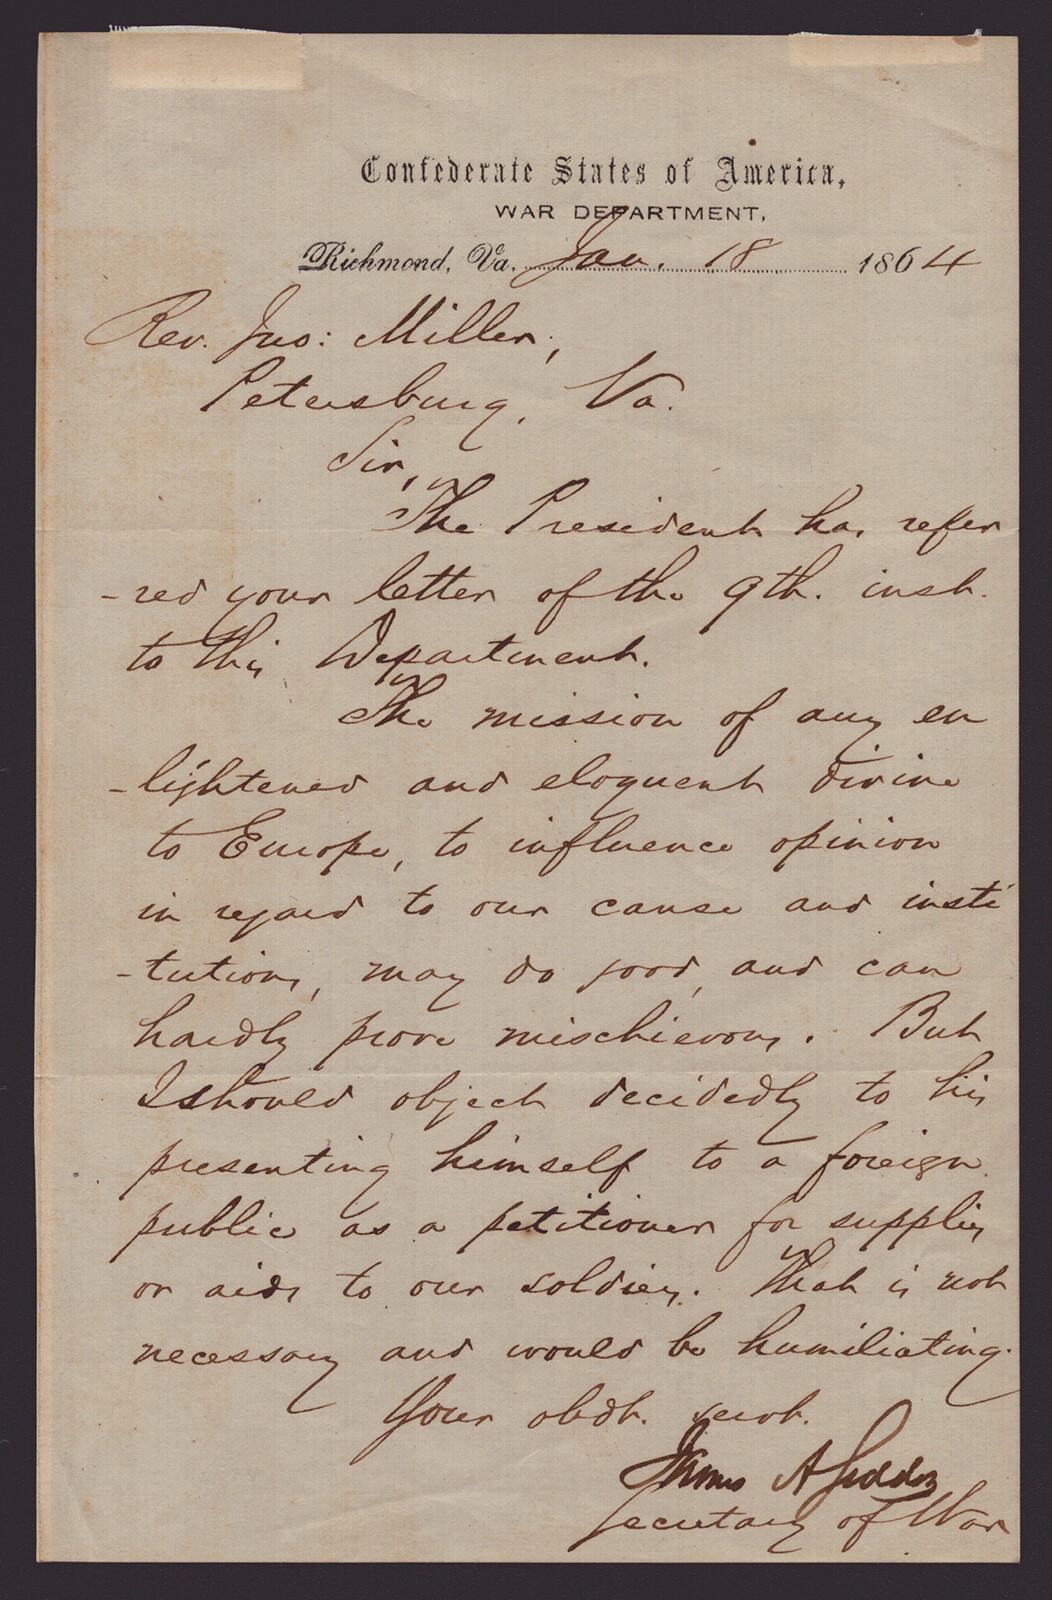 Confederate States of America,
WAR DEPARTMENT,
Richmond, Va. Jan. 18 1864
Rev. Jno: Miller,
Petersburg, Va.
Sir,
The President has refer
-red your letter of the 9th. inst.
to this Department.
The mission of any en
-lightened and eloquent divine
to Europe, to influence opinion
in regard to our cause and insti
-tutions, may do good, and can
hardly prove mischievous. But
I should object decidedly to his
presenting himself to a foreign
public as a petitioner for supplies
or aids to our soldiers. That is not
necessary and would be humiliating.
Your obdt. servt.
James A Seddon
Secretary of War